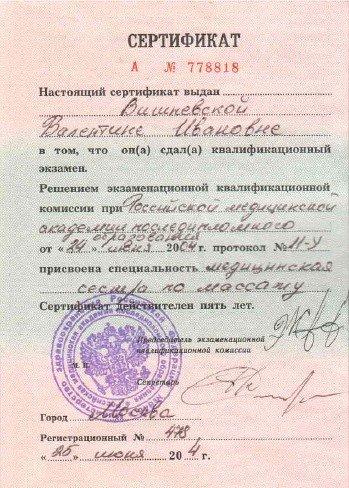 СЕРТИФИКАТ
А № 778818
Настоящий сертификат выдан
Вишневской
Валентине Ивановне
в том, что он(а) сдал(а) квалификационный
экзамен.
Решением экзаменационной квалификационной
комиссии при Российской медицинской
академии последипломного
образования
от «24» июня 2004 г. протокол № М-У
присвоена специальность медицинская
сестра по массажу
Сертификат действителен пять лет.
Председатель экзаменационной
квалификационной комиссии
М. П.
Секретарь
Город Москва
Регистрационный № 478
«25» июня 2004 г.